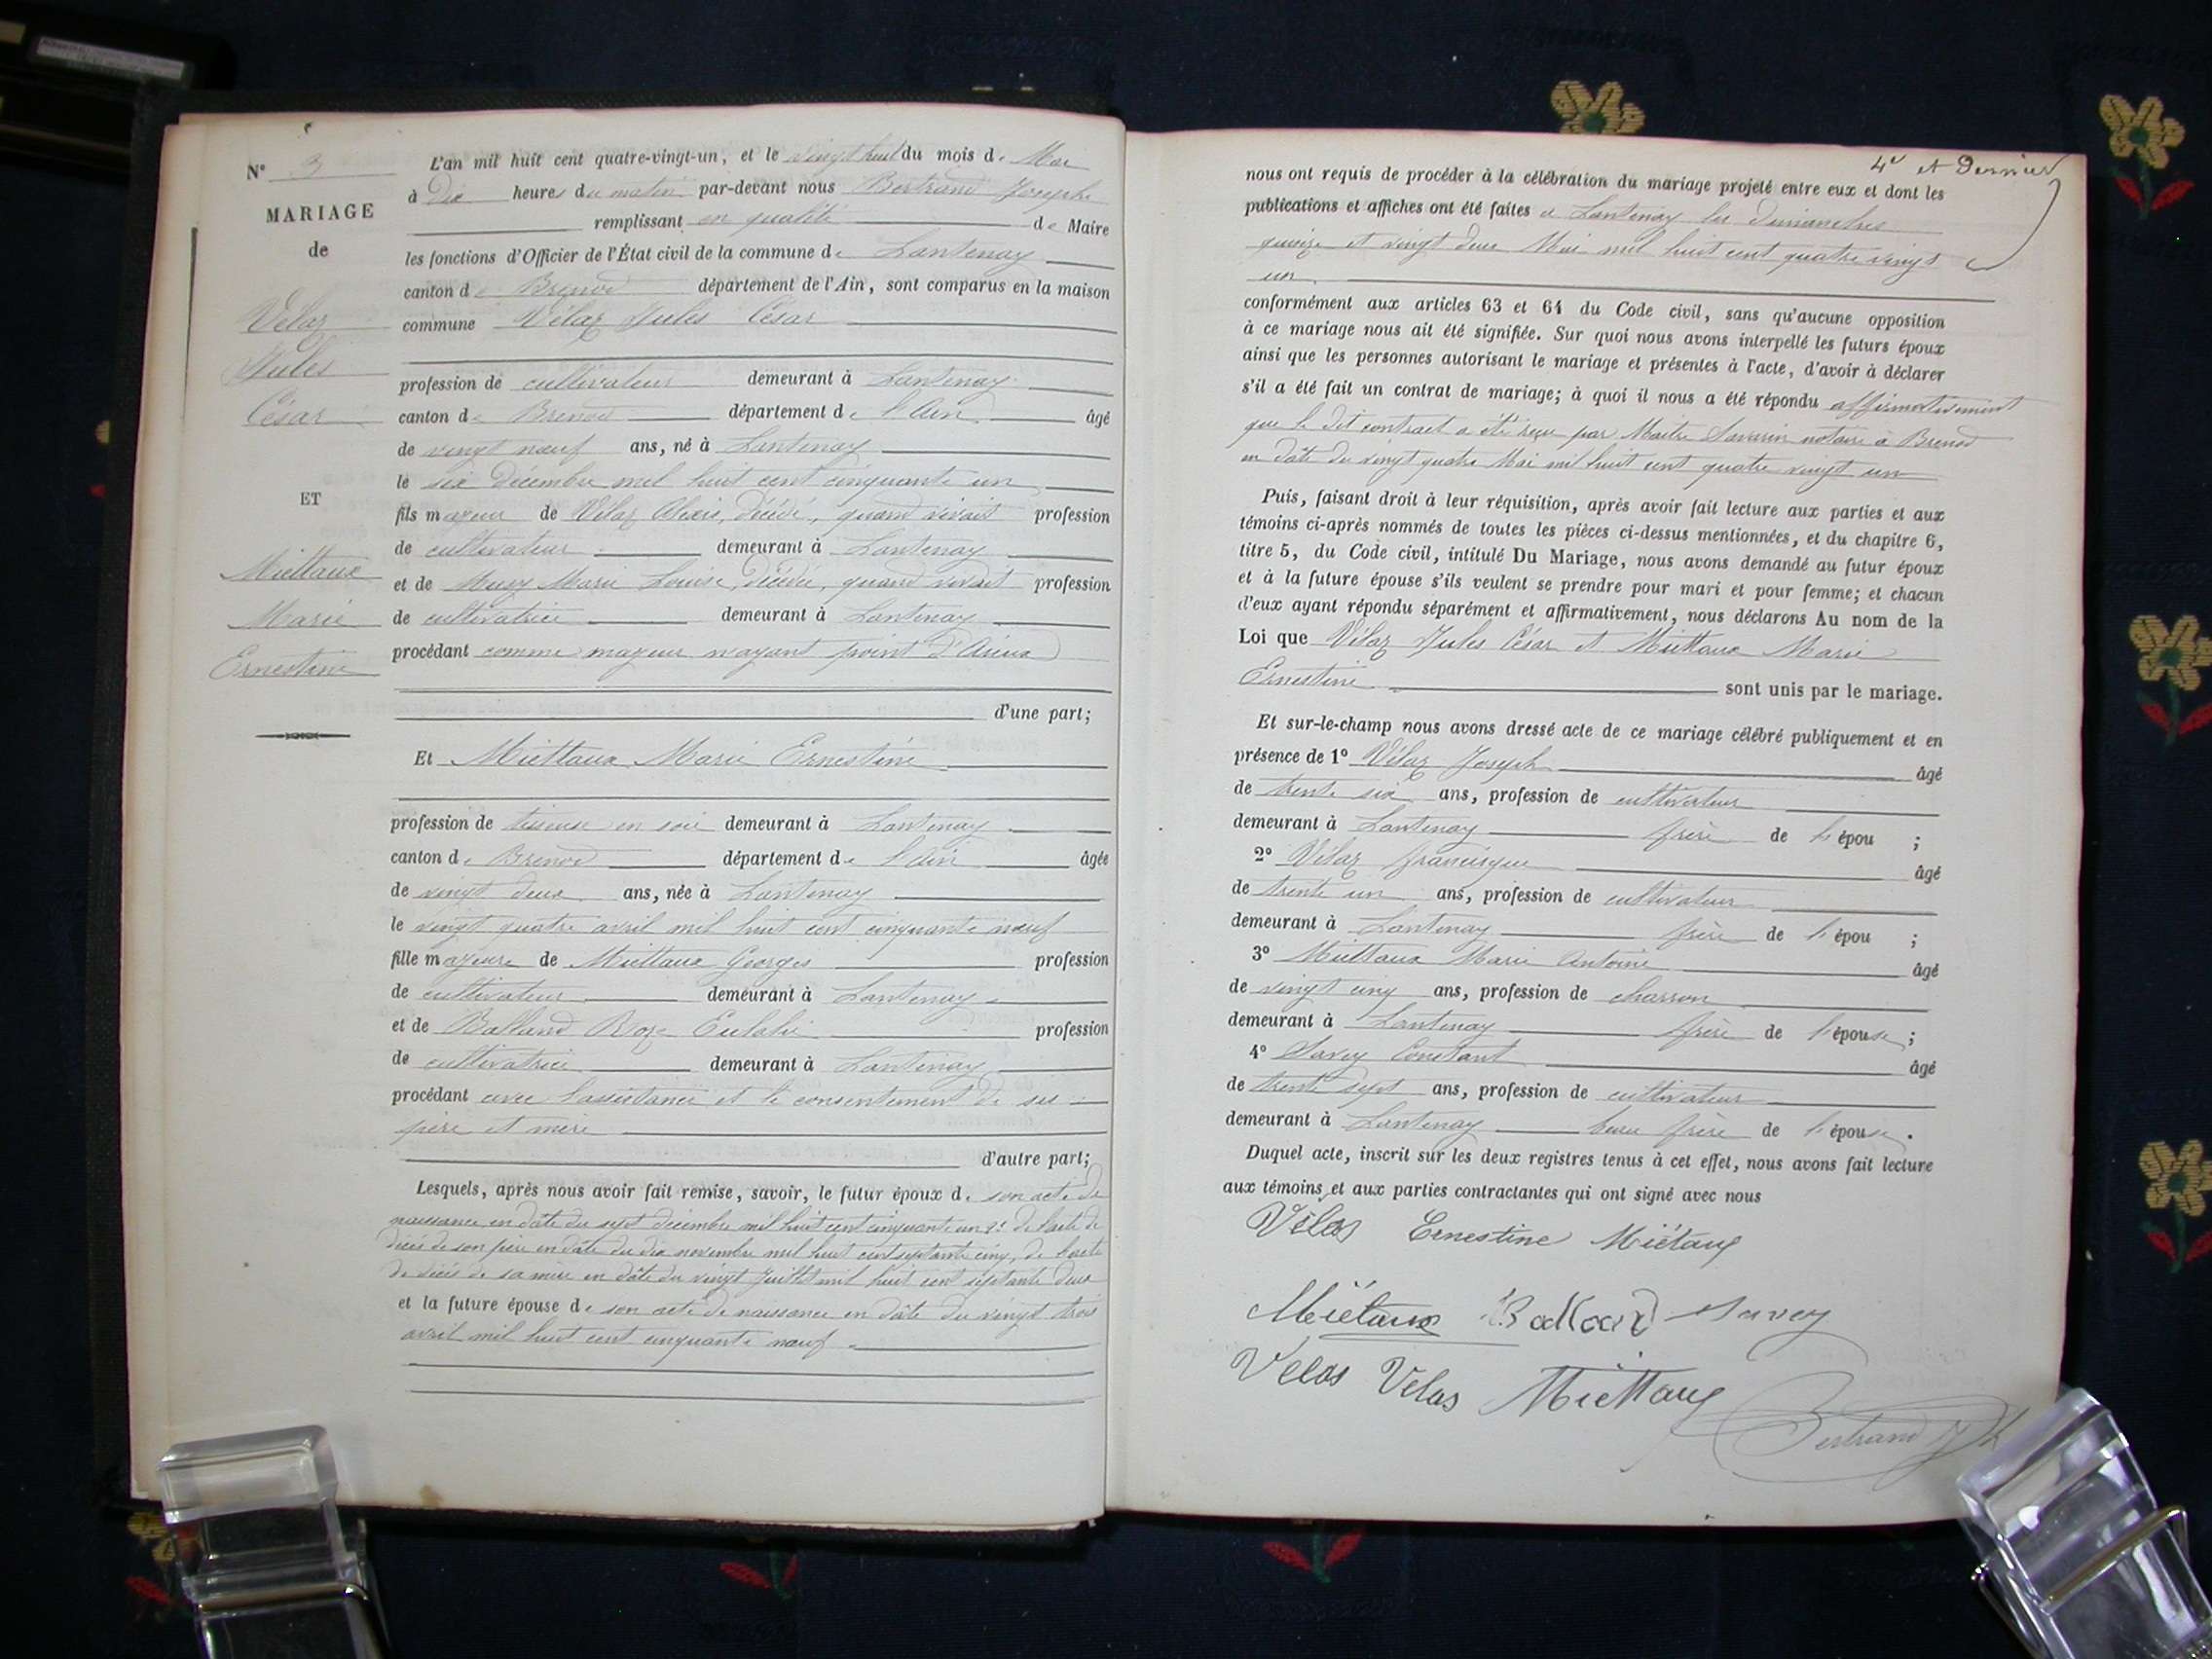 N° 3
MARIAGE
de
Vélaz
Jules
César
ET
Miettaux
Marie
Ernestine
L'an mil huit cent quatre-vingt-un, et le vingt huit du mois de Mai
à Dix heures du matin par-devant nous Bertrand Joseph
remplissant en qualité de Maire
les fonctions d'Officier de l'État civil de la commune de Lantenay
canton de Brenod département de l'Ain, sont comparus en la maison
commune Vélaz Jules César
profession de cultivateur demeurant à Lantenay
canton de Brenod département de l'Ain âgé
de vingt neuf ans, né à Lantenay
le six Décembre mil huit cent cinquante un
fils majeur de Vélaz Alexis, décédé, quand vivait profession
de cultivateur demeurant à Lantenay
et de Marie Louise, décédée, quand vivait profession
de cultivatrice demeurant à Lantenay
procédant comme majeur n'ayant point d'
d'une part;
Et Miettaux Marie Ernestine
profession de tisseuse en soie demeurant à Lantenay
canton de Brenod département de l'Ain âgée
de vingt deux ans, née à Lantenay
le vingt quatre avril mil huit cent cinquante neuf
fille majeure de Miettaux Georges profession
de cultivateur demeurant à Lantenay
et de Balland Roze Eulalie profession
de cultivatrice demeurant à Lantenay
procédant avec l'assistance et le consentement de ses
père et mère
d'autre part;
Lesquels, après nous avoir fait remise, savoir, le futur époux de son acte de
naissance en date du sept décembre mil huit cent cinquante un 2° de l'acte de
décès de son père en date du dix novembre mil huit cent septante cinq, de l'acte
de décès de sa mère en date du vingt Juillet mil huit cent septante deux
et la future épouse de son acte de naissance en date du vingt trois
avril mil huit cent cinquante neuf
4e et Dernier
nous ont requis de procéder à la célébration du mariage projeté entre eux et dont les
publications et affiches ont été faites à Lantenay les dimanches
quinze et vingt deux Mai mil huit cent quatre vingt
un
conformément aux articles 63 et 64 du Code civil, sans qu'aucune opposition
à ce mariage nous ait été signifiée. Sur quoi nous avons interpellé les futurs époux
ainsi que les personnes autorisant le mariage et présentes à l'acte, d'avoir à déclarer
s'il a été fait un contrat de mariage; à quoi il nous a été répondu affirmativement
que le dit contract a été reçu par Maître Savarin notaire à Brenod
en date du vingt quatre Mai mil huit cent quatre vingt un
Puis, faisant droit à leur réquisition, après avoir fait lecture aux parties et aux
témoins ci-après nommés de toutes les pièces ci-dessus mentionnées, et du chapitre 6,
titre 5, du Code civil, intitulé Du Mariage, nous avons demandé au futur époux
et à la future épouse s'ils veulent se prendre pour mari et pour femme; et chacun
d'eux ayant répondu séparément et affirmativement, nous déclarons Au nom de la
Loi que Vélaz Jules César et Miettaux Marie
Ernestine sont unis par le mariage.
Et sur-le-champ nous avons dressé acte de ce mariage célébré publiquement et en
présence de 1° Vélaz Joseph âgé
de trente six ans, profession de cultivateur
demeurant à Lantenay frère de l'épou ;
2° Vélaz francisque âgé
de trente un ans, profession de cultivateur
demeurant à Lantenay frère de l'épou ;
3° Miettaux Marie Antoine âgé
de vingt cinq ans, profession de charron
demeurant à Lantenay frère de l'épouse ;
4° Savey Constant âgé
de trente sept ans, profession de cultivateur
demeurant à Lantenay beau frère de l'épouse .
Duquel acte, inscrit sur les deux registres tenus à cet effet, nous avons fait lecture
aux témoins et aux parties contractantes qui ont signé avec nous
Vélas Ernestine Miétaux
Miétaux Balland Savey
Velas Velas Miettaux
Bertrand Jh